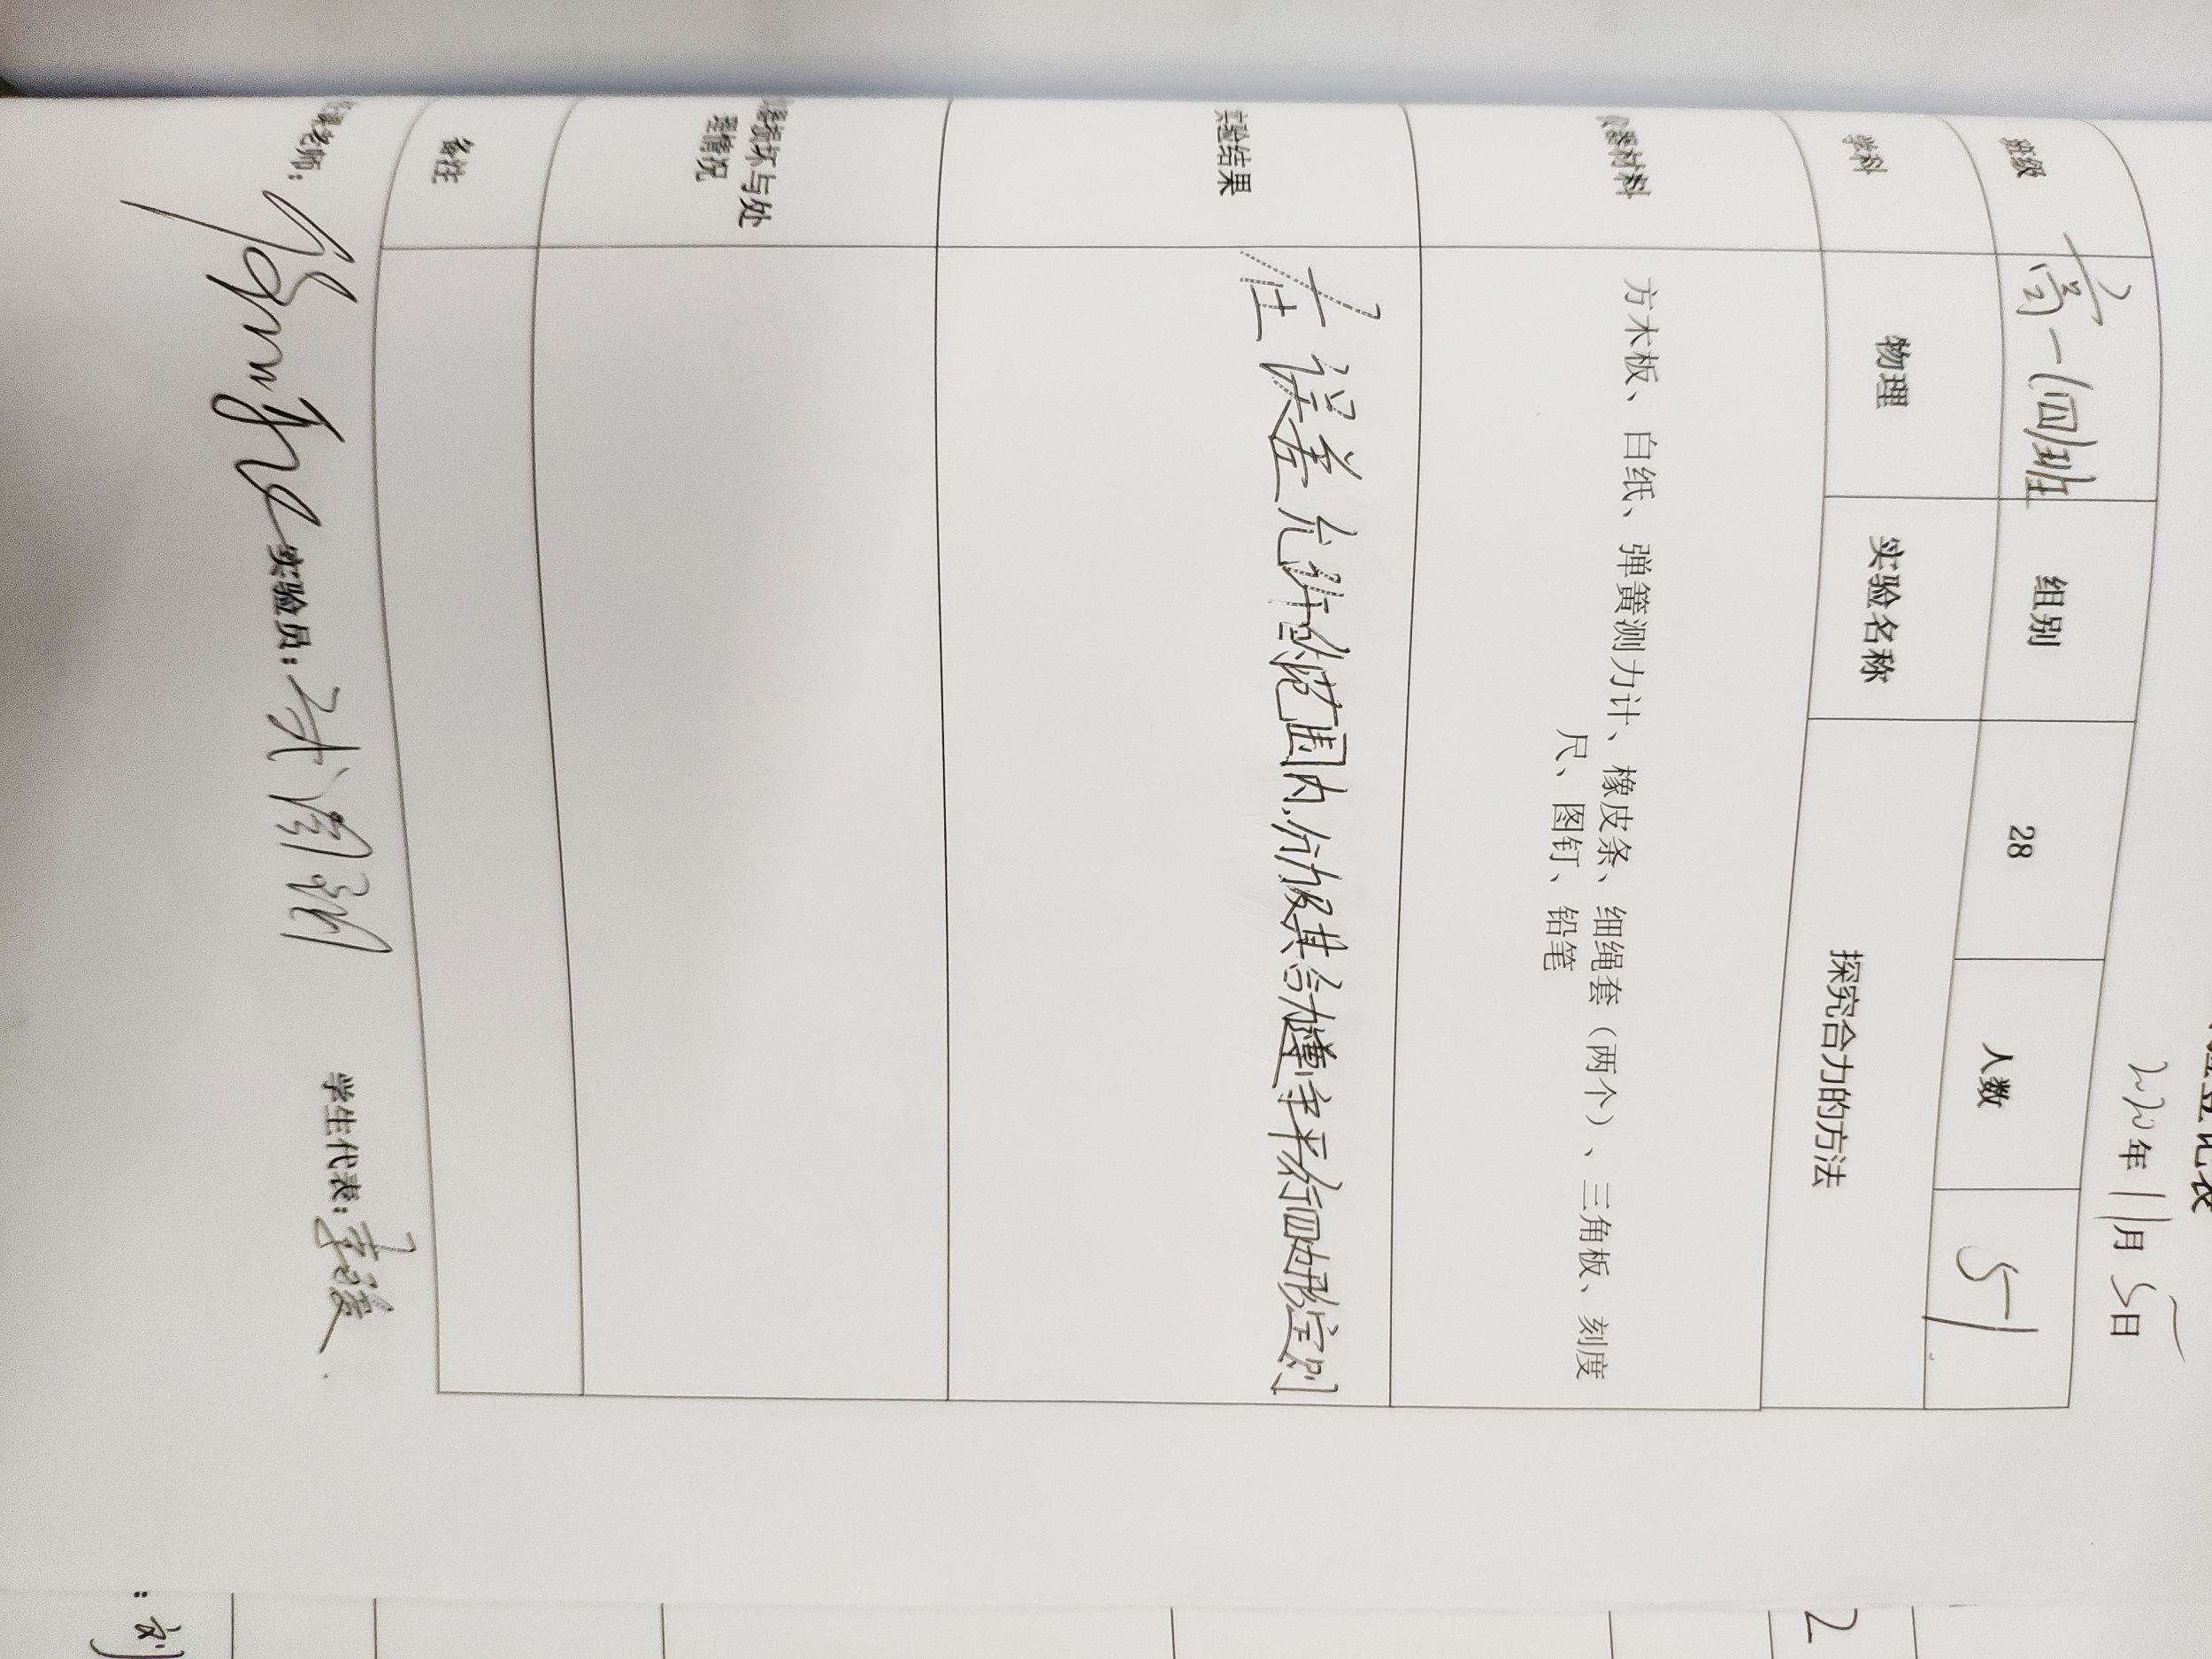 验登记表
2020年11月5日
班级 高一(四)班 组别 28 人数 51
学科 物理 实验名称 探究合力的方法
仪器材料 方木板、白纸、弹簧测力计、橡皮条、细绳套（两个）、三角板、刻度
尺、图钉、铅笔
实验结果 在误差允许的范围内,分力及其合力遵守平行四边形定则
器损坏与处
理情况
备注
课老师: 实验员: 学生代表:
2
: 刘